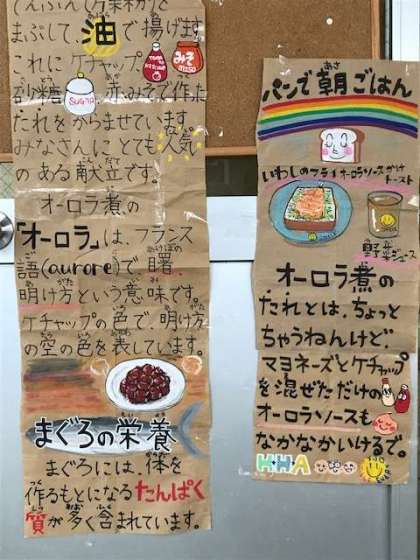 でんぷん(片栗粉)で
まぶして、油で揚げます。
これに ケチャップ
TOMATO KETCHUP
みそ
MISO
砂糖
SUGAR
赤みそで作った
たれをからませています。
みなさんに とても人気
の ある 献立です。
オーロラ煮の
「オーロラ」は、フランス
語(aurore)で、曙、
明け方という意味です。
ケチャップの色で、明け方
の空の色を表しています。
まぐろの栄養
まぐろには、体を
作るもとになるたんぱく
質が多く含まれています。
パンで朝ごはん
いわしのフライオーロラソースがけ
トースト
野菜ジュース
オーロラ煮の
たれとは、ちょっと
ちゃうねんけど、
マヨネーズとケチャップ
を混ぜただけの
オーロラソースも
なかなかいけるで。
HHA